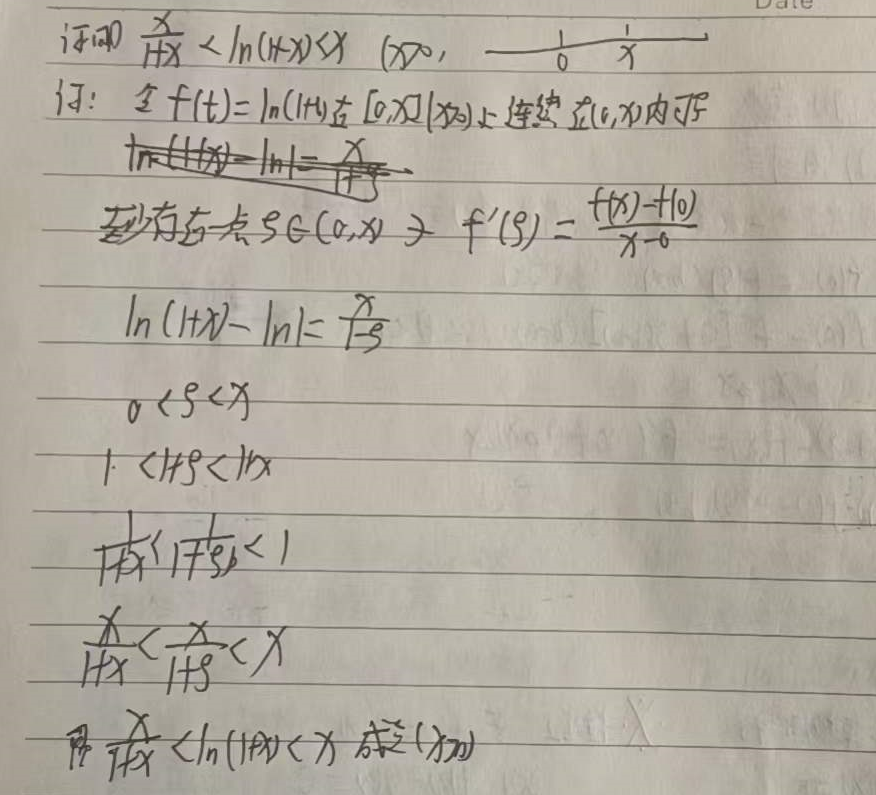 证明 x/(1+x) < ln(1+x) < x (x>0,
0 x
证: 令 f(t)=ln(1+t) 在 [0,x] (x>0) 上连续 在(0,x)内可导
至少存在一点 ξ∈(0,x) ∋ f'(ξ) = (f(x)-f(0))/(x-0)
ln(1+x) - ln1 = x/(1-ξ)
0 < ξ < x
1 < 1+ξ < 1+x
1/(1+x) < 1/(1+ξ) < 1
x/(1+x) < x/(1+ξ) < x
即 x/(1+x) < ln(1+x) < x 成立 (x>0)
Date